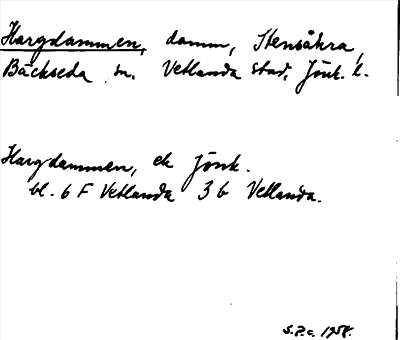 Hargdammen, damm, Stensåkra,
Bäckseda sn. Vetlanda stad, Jönk. l.
Hargdammen, ek Jönk.
bl. 6 F Vetlanda 3 b Vetlanda.
S.P.c. 1958.